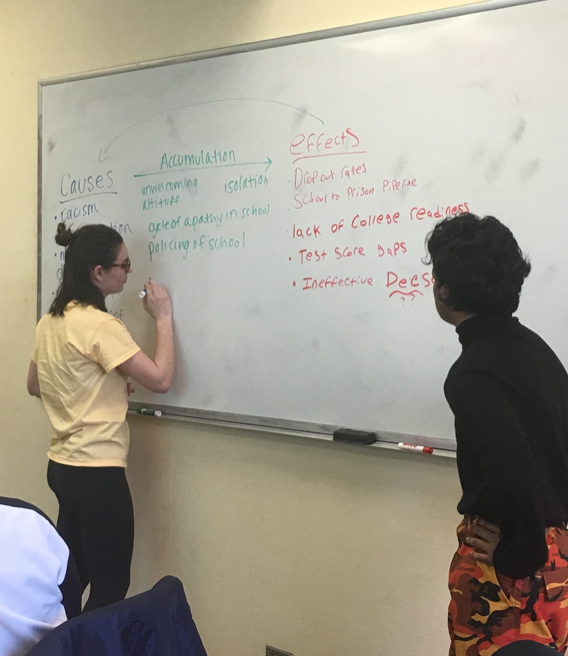 Causes
• racism
Accumulation
unwelcoming isolation
attitude
cycle of apathy in school
policing of school
effects
• Drop out rates
• School to Prison Pipeline
• lack of College readiness
• Test Score gaps
• Ineffective Decs
? ?